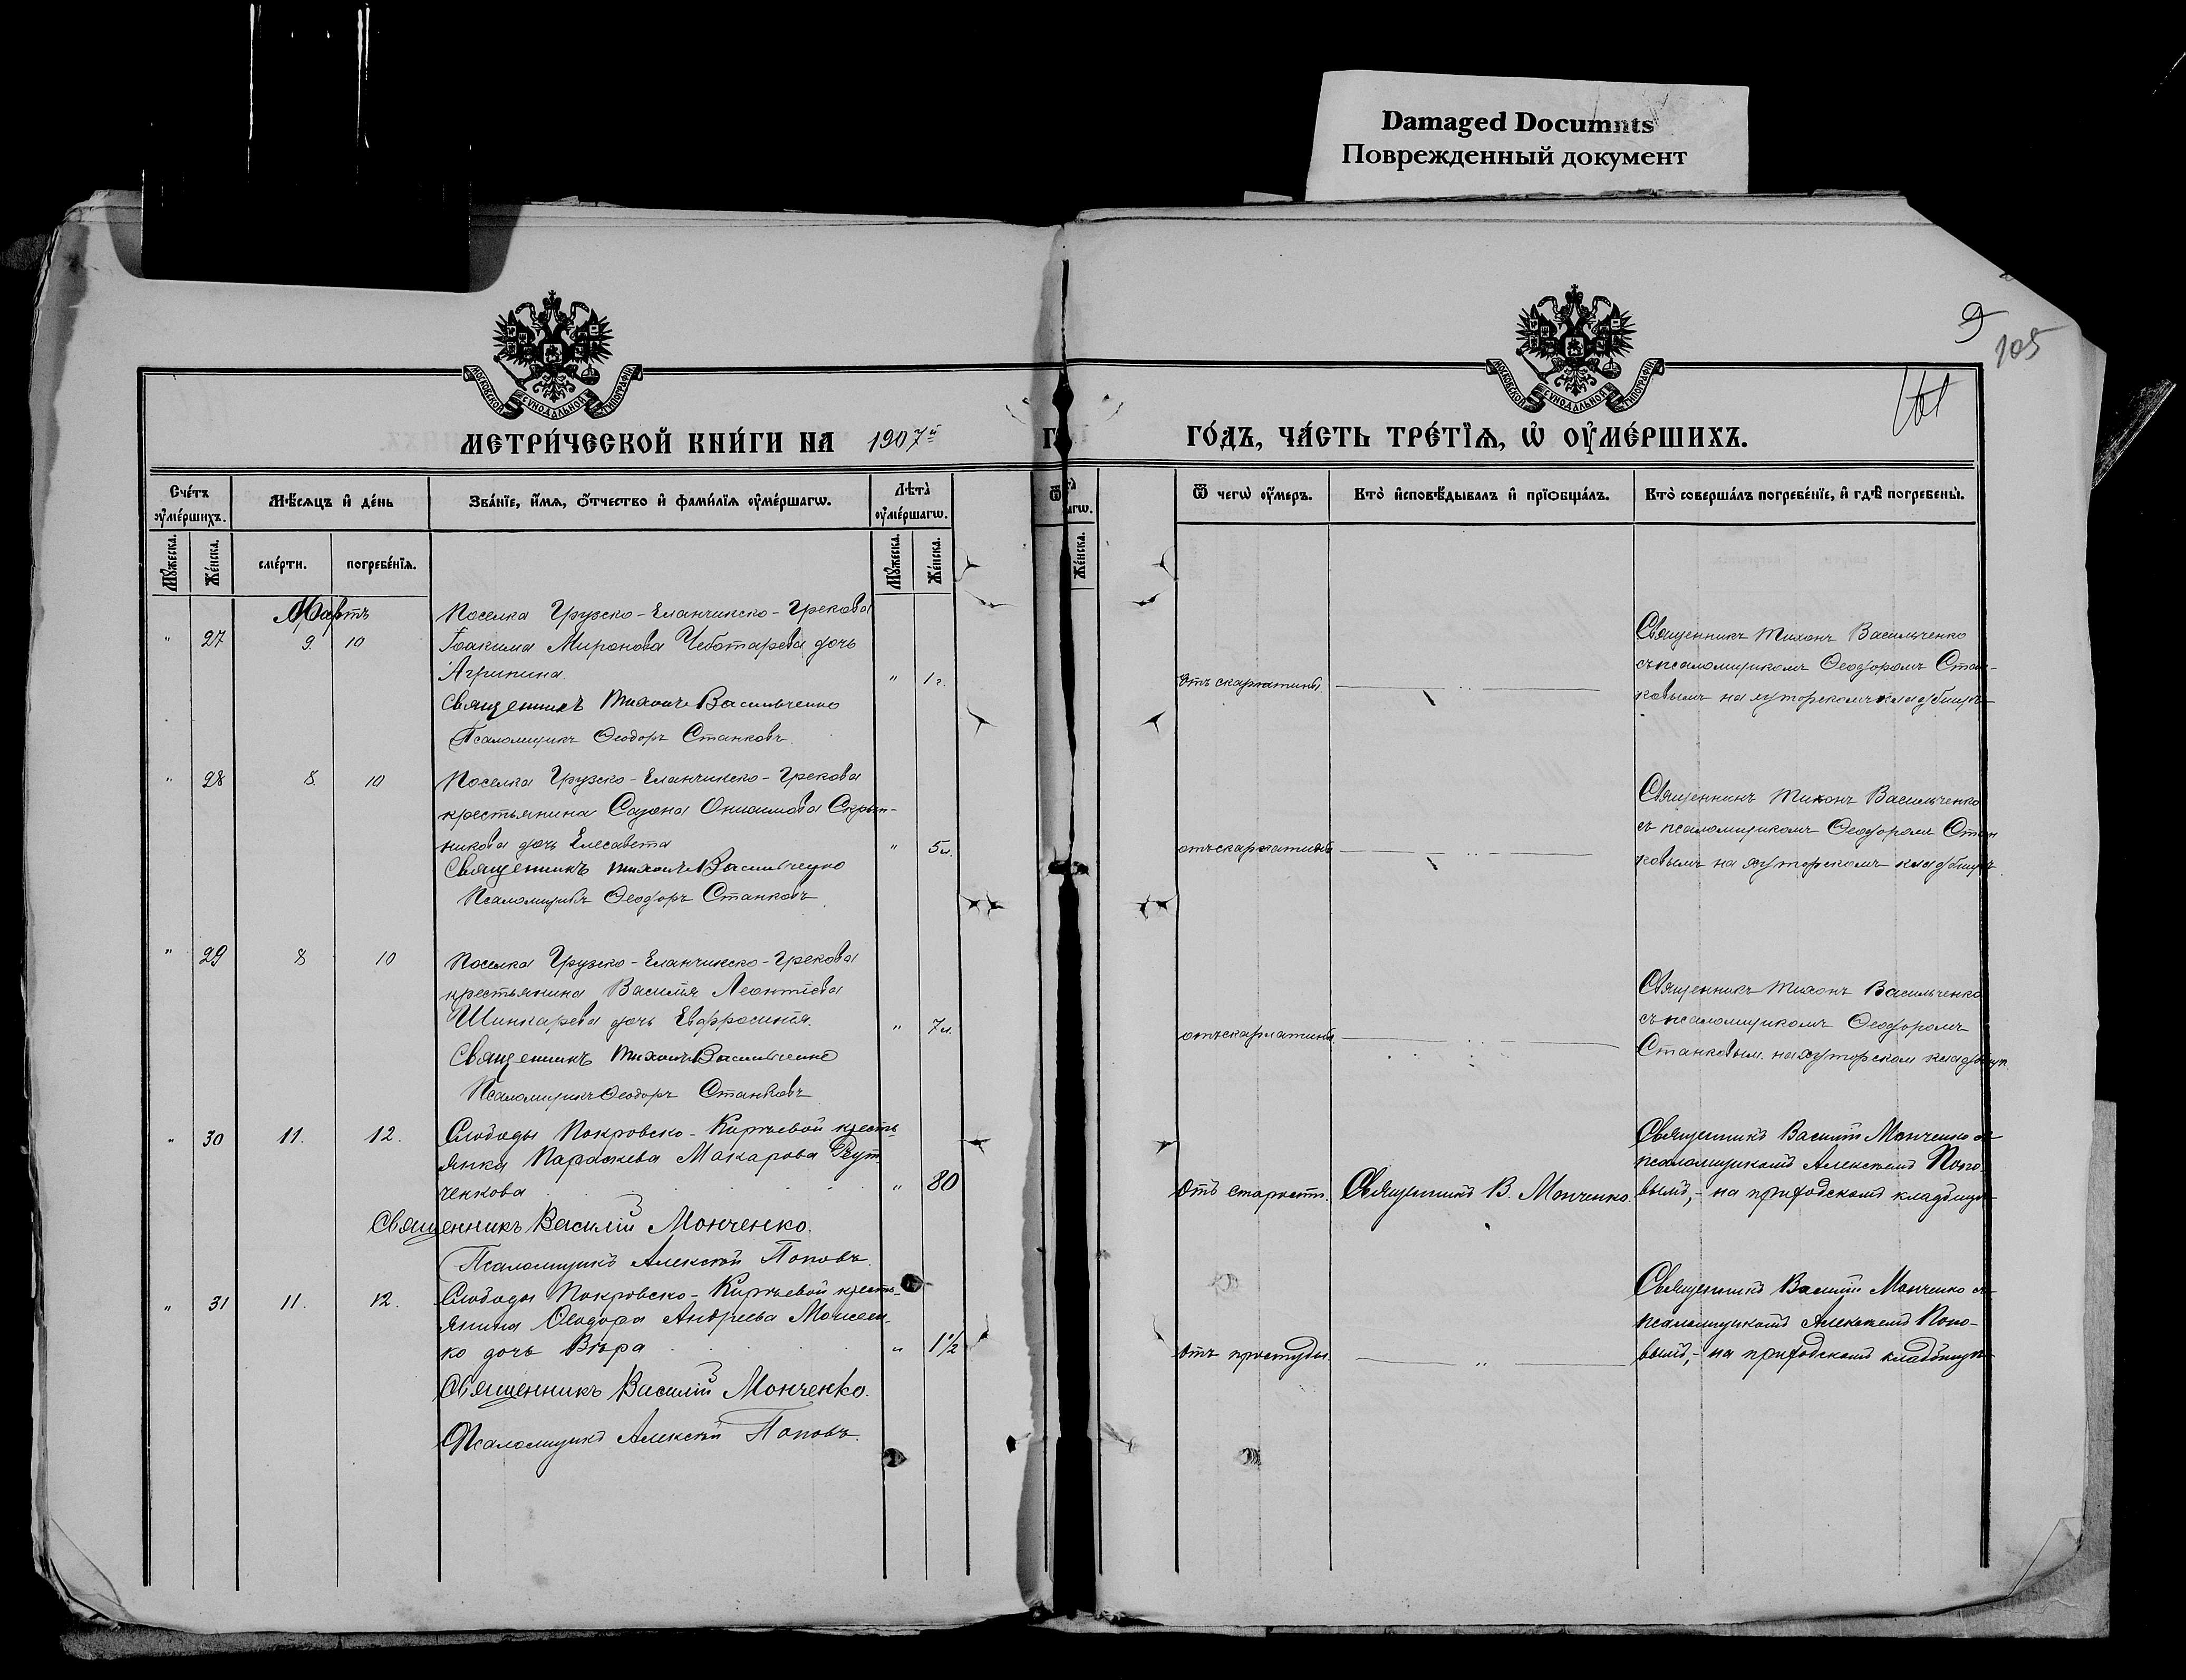 Damaged Documnts
Поврежденный документ
9
105
МОСКОВСКОЙ СУНОДАЛЬНОЙ ТИПОГРАФІИ
МОСКОВСКОЙ СУНОДАЛЬНОЙ ТИПОГРАФІИ
МЕТРИ́ЧЕСКОЙ КНИ́ГИ НА 1907й
ГО́ДЪ, ЧА́СТЬ ТРЕ́ТІѦ, Ѡ҆ ОУ҆МЕ́РШИХЪ.
Сче́тъ оу҆ме́ршихъ.
Мѣ́сѧцъ и҆ де́нь
Зва́нїе, и҆́мѧ, ѻ҆́тчество и҆ фами́лїѧ оу҆ме́ршагѡ.
Лѣта̀ оу҆ме́ршагѡ.
Ѿ чегѡ̀ оу҆́меръ.
Кто̀ и҆сповѣ́дывалъ и҆ прїѻбща́лъ.
Кто̀ соверша́лъ погребе́нїе, и҆ гдѣ̀ погребены̀.
Мꙋ́жеска.
Же́нска.
сме́рти.
погребе́нїѧ.
Мꙋ́жеска.
Же́нска.
Же́нска.
Мартъ
" 27 9. 10
Поселка Грузско-Еланчинско-Грекова
Іоакима Миронова Чеботарева дочь
Агрипина. " 1 г.
Священникъ Тихонъ Васильченко
Псаломщикъ Ѳеодоръ Станковъ.
отъ скарлатины.
Священникъ Тихонъ Васильченко
съ псаломщикомъ Ѳеодоромъ Стан-
ковымъ на хуторскомъ кладбищѣ
" 28 8. 10
Поселка Грузско-Еланчинско-Грекова
крестьянина Сазона Онисимова Скрып-
никова дочь Елесавета " 5 л.
Священникъ Тихонъ Васильченко
Псаломщикъ Ѳеодоръ Станковъ
отъ скарлатины
Священникъ Тихонъ Васильченко
съ псаломщикомъ Ѳеодоромъ Стан
ковымъ на хуторскомъ кладбищѣ
" 29 8 10
Поселка Грузско-Еланчинско-Грекова
крестьянина Василія Леонтіева
Шинкарева дочь Евфросинія. " 7 л.
Священникъ Тихонъ Васильченко
Псаломщикъ Ѳеодоръ Станковъ
отъ скарлатины
Священникъ Тихонъ Васильченко
съ псаломщикомъ Ѳеодоромъ
Станковым. на хуторском кладбищѣ
" 30 11. 12.
Слободы Покровско-Кирѣевой кресть-
янка Параскева Макарова Реут-
ченкова " 80
Священникъ Василій Монченко.
Псаломщикъ Алексѣй Поповъ.
Отъ старости.
Священникъ В. Монченко.
Священникъ Василій Монченко съ
псаломщикомъ Алексѣемъ Попо-
вымъ,- на приходскомъ кладбищѣ
" 31 11. 12.
Слободы Покровско-Кирѣевой кресть-
янина Ѳеодора Андреева Моисеен-
ко дочь Вѣра " 1½
Священникъ Василій Монченко.
Псаломщикъ Алексѣй Поповъ.
Отъ простуды.
Священникъ Василій Монченко съ
псаломщикомъ Алексѣемъ Попо-
вымъ,- на приходскомъ кладбищѣ